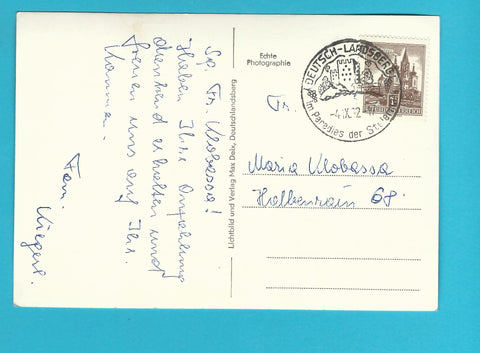 Sg. Fr. Klobassa!
Haben Ihre Anzahlung
dankend erhalten und
freuen uns auf Ihr
Kommen.
Fam.
Echte
Photographie
Lichtbild und Verlag Max Deix, Deutschlandsberg
DEUTSCH-LANDSBERG
im Paradies der Steierm
-4.IX.
Fr.
Maria Klobassa
Halbenrain 68.